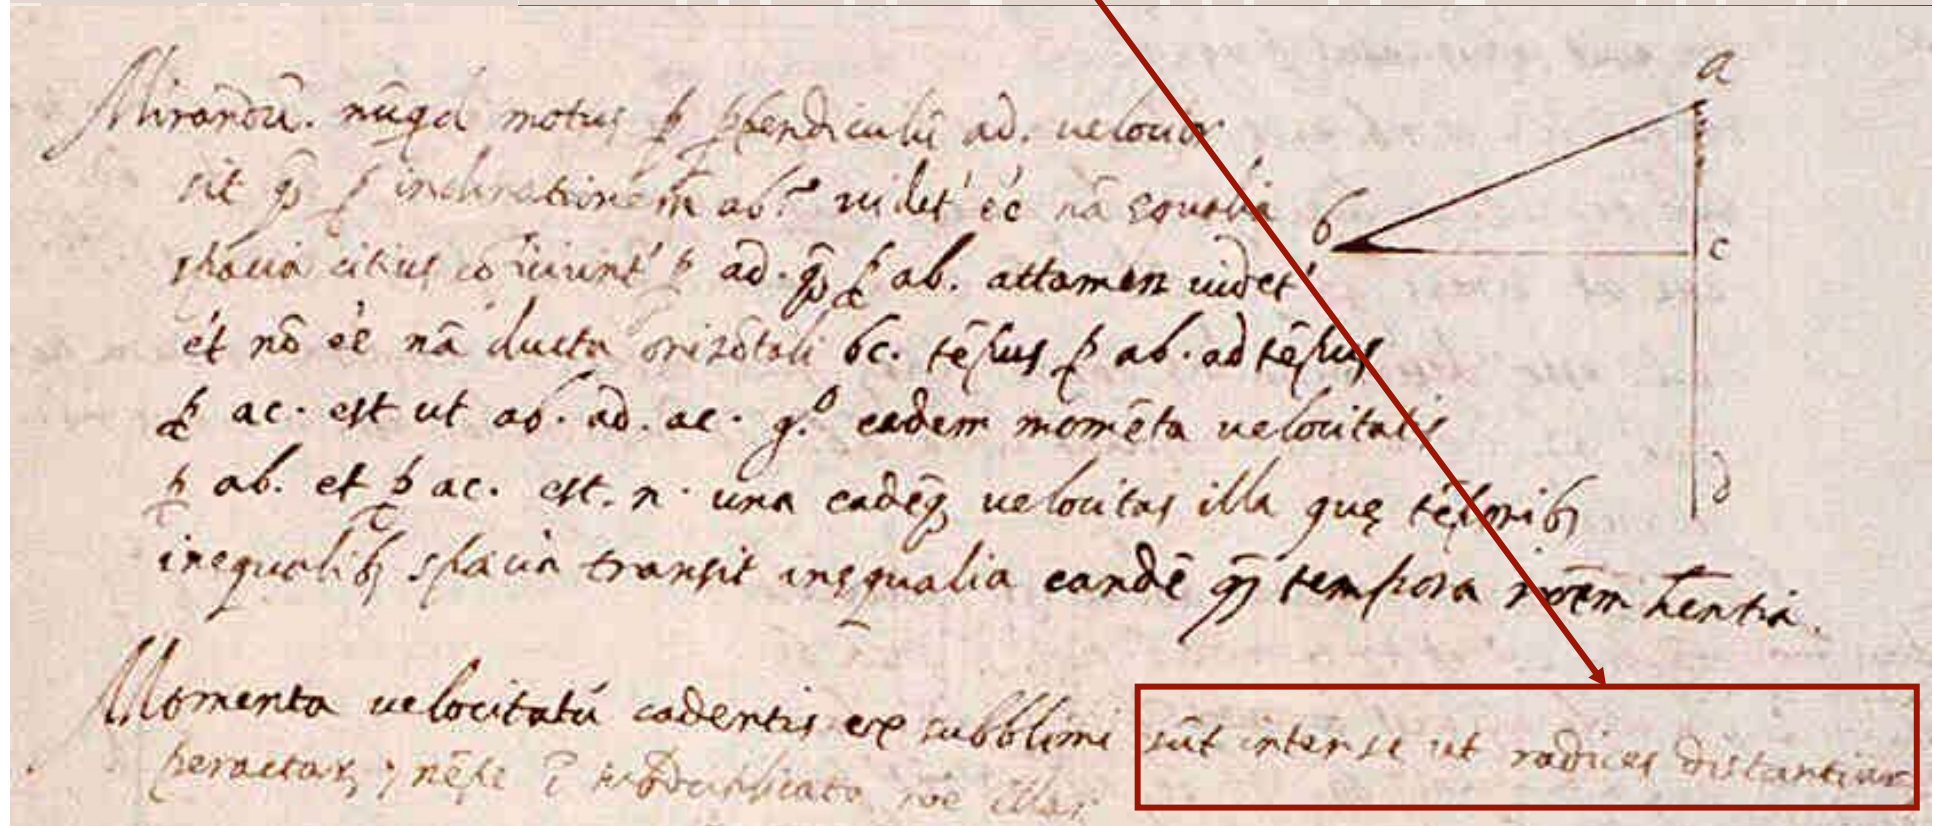 Mirandū. nūqd motus ꝑ ꝑpendiculū ad. uelocior
sit q̄ ꝑ inclinationem ab. uidet' eē nā equalia
spacia citius ꝑ ad. q̄ ꝑ ab. attamen uidet'
et nō eē nā ducta orizōtali bc. tēpus ꝑ ab. ad tēpus
ꝑ ac. est ut ab. ad. ac. g.º eadem momēta uelocitatis
ꝑ ab. et ꝑ ac. est. n. una eadēq uelocitas illa quę tēporib
inequalib spacia transit inęqualia eandē q tempora hentia.
Momenta uelocitatū cadentis ex subblimi sūt inter se ut radices distantiar
peractar; nēpe ī illar
a
b
c
d